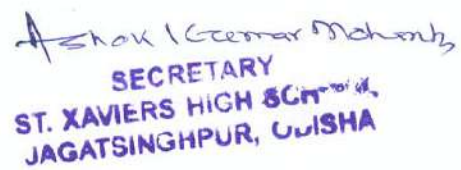 Ashok Kumar Mohanty
SECRETARY
ST. XAVIERS HIGH SCHOOL,
JAGATSINGHPUR, ODISHA